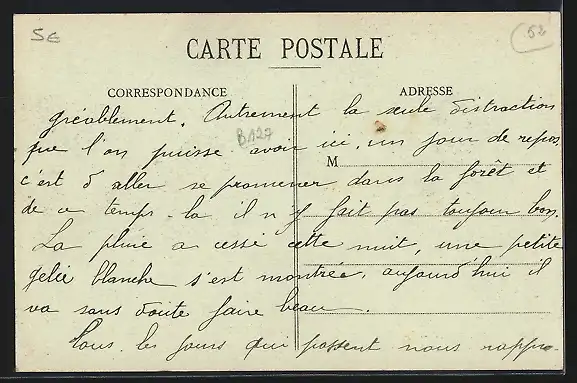 SE
52
CARTE POSTALE
CORRESPONDANCE
ADRESSE
B127
M
gréablement. Autrement la seule distraction
que l'on puisse avoir ici, un jour de repos,
c'est d'aller se promener dans la forêt et
de ce temps-là il n'y fait pas toujours bon.
La pluie a cessé cette nuit, une petite
gelée blanche s'est montrée, aujourd'hui il
va sans doute faire beau.
Tous les jours qui passent nous rappro-